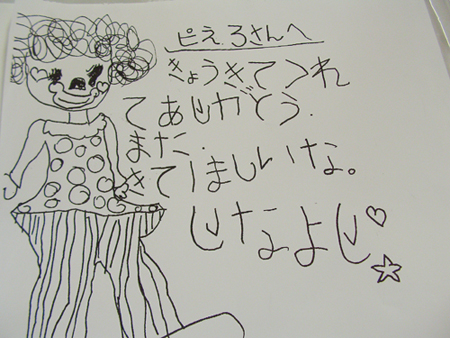 ピえろさんへ
きょうきてつれ
てありがとう.
まだ.
きてほしいな。
りなより